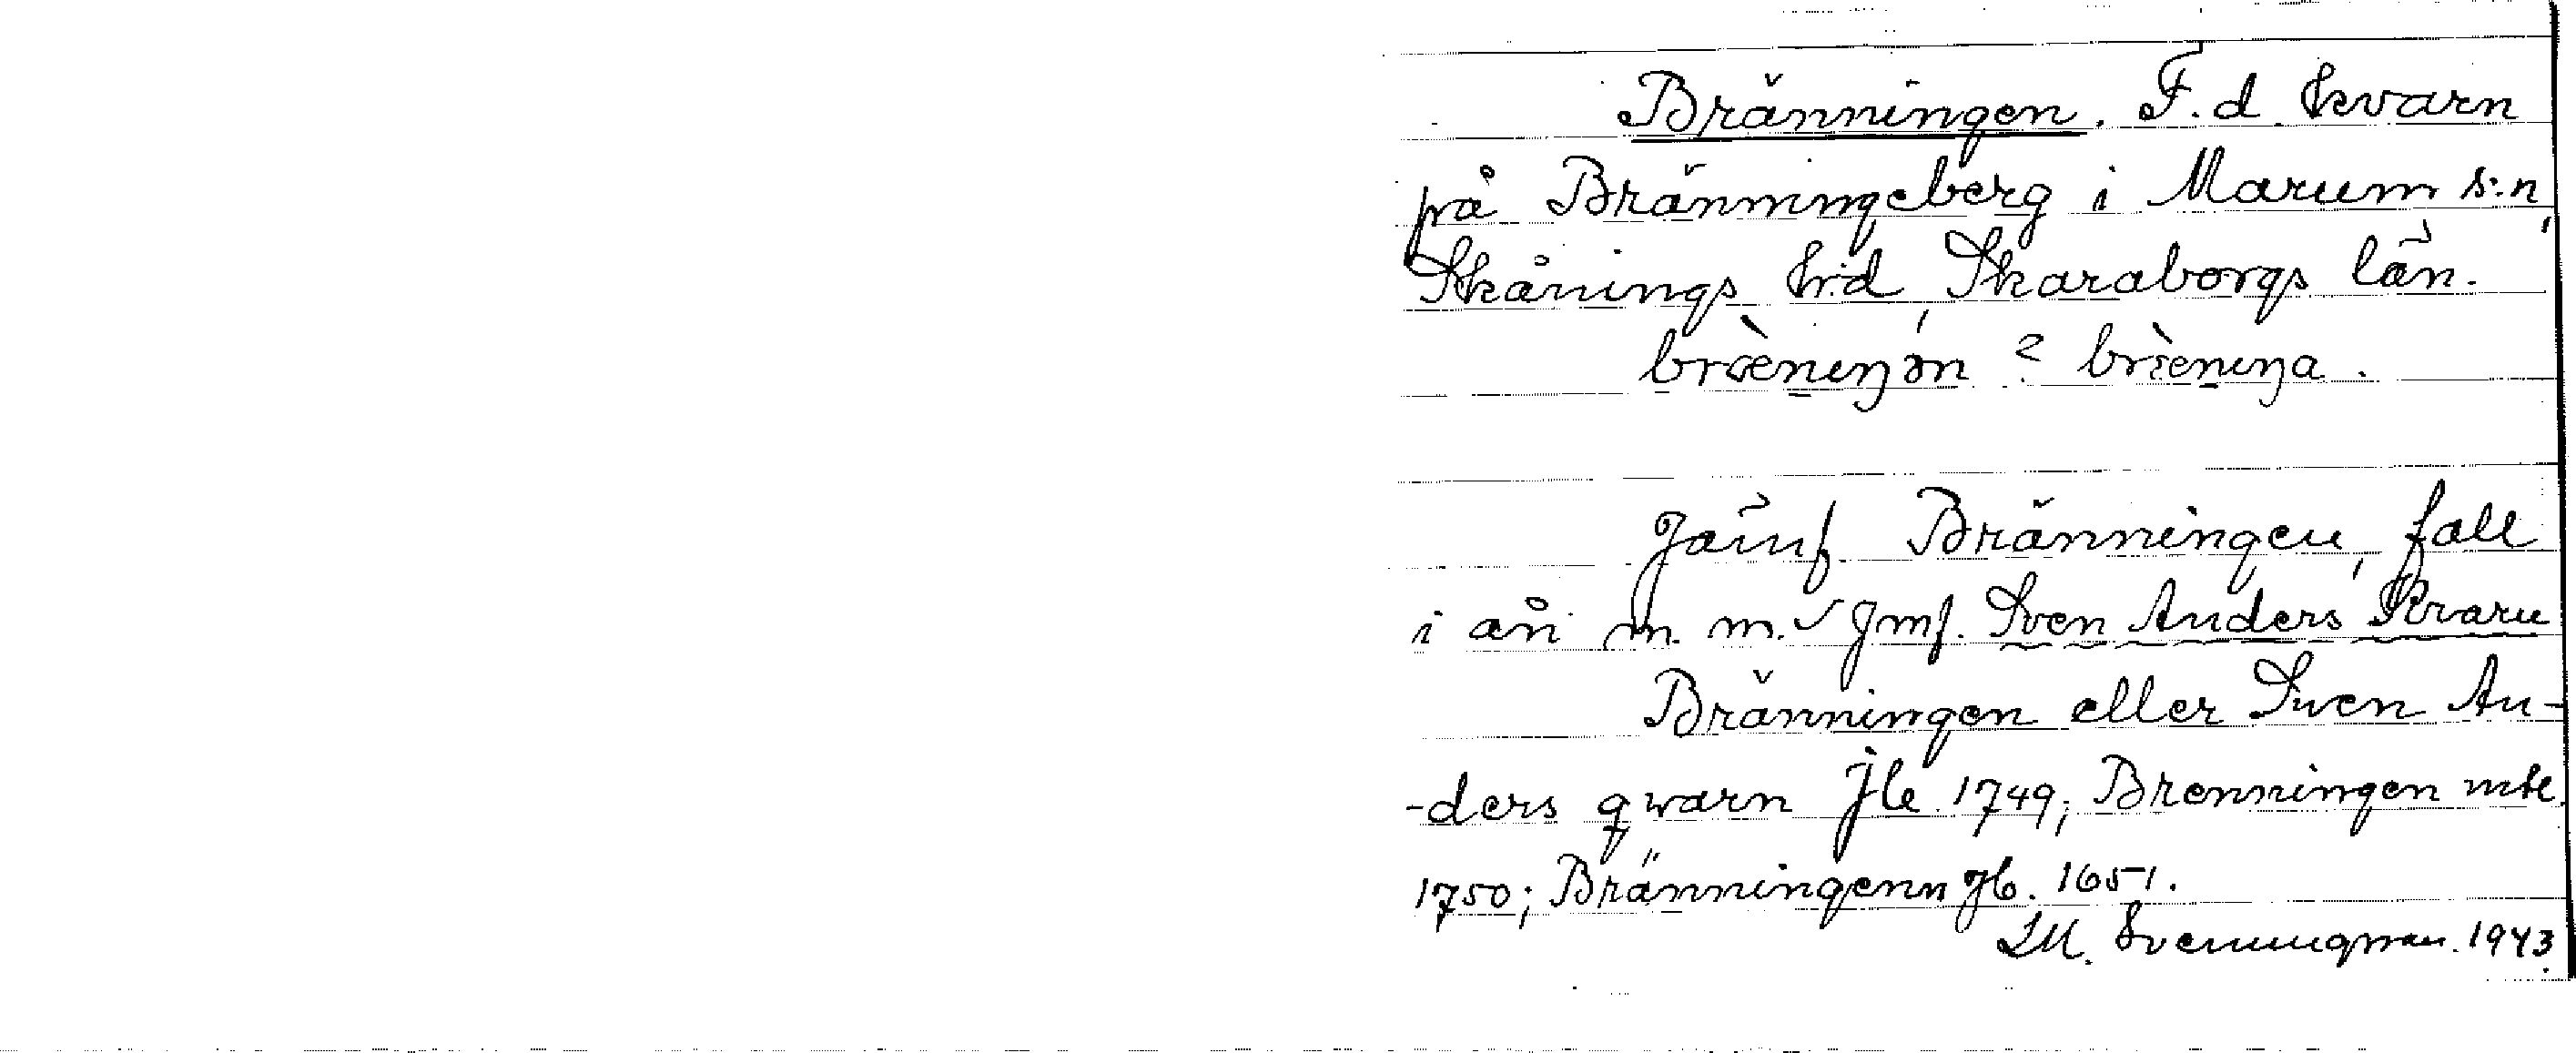 Bränningen. F.d. kvarn
på Bränningeberg i Marum s:n,
Skånings h:d, Skaraborgs län.
bræ̀niŋən 2 bræ̀niŋa.
Jämf. Bränningen, fall
i ån m. m. Jmf. Sven Anders Kvarn
Bränningen eller Swen An-
-ders qwarn Jb 1749; Brenningen mtl.
1750; Bränningenn Jb. 1651.
1943.